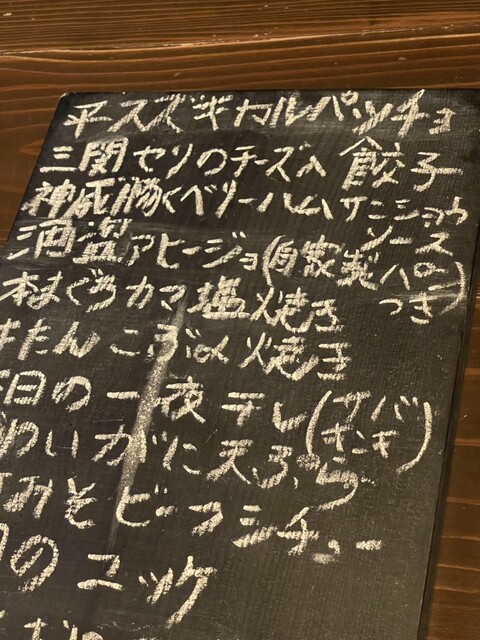 平スズキカルパッチョ
三関セリのチーズ入餃子
神成豚くベリールムサンショウ
ソース
酒盗アヒージョ(自家製パン
つき)
本まぐろカマ塩焼き
はたんこぶの焼き
日の一夜干し(サバ
ホッキ)
わいがに天ぷら
みそビーフシチュー
のユッケ